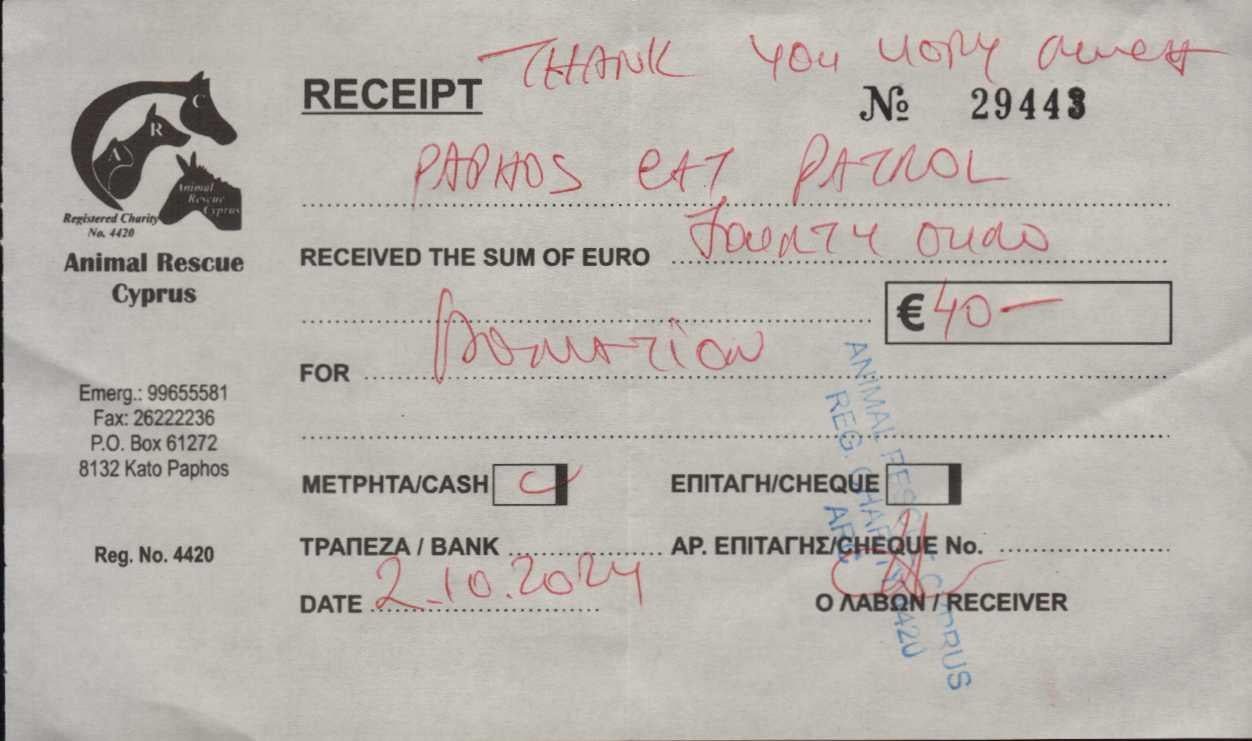 THANK YOU VORY
RECEIPT
№ 29443
C
R
A
Animal
Rescue
Cyprus
Registered Charity
No. 4420
Animal Rescue
Cyprus
PAPHOS CAT PATROL
RECEIVED THE SUM OF EURO
€40-
FOR Donation
Emerg.: 99655581
Fax: 26222236
P.O. Box 61272
8132 Kato Paphos
ΜΕΤΡΗΤΑ/CASH
ΕΠΙΤΑΓΗ/CHEQUE
Reg. No. 4420
ΤΡΑΠΕΖΑ / BANK
ΑΡ. ΕΠΙΤΑΓΗΣ/CHEQUE No.
DATE 2.10.2024
Ο ΛΑΒΩΝ / RECEIVER
ANIMAL RESCUE CYPRUS
REG. CHARITY 4420
ARC